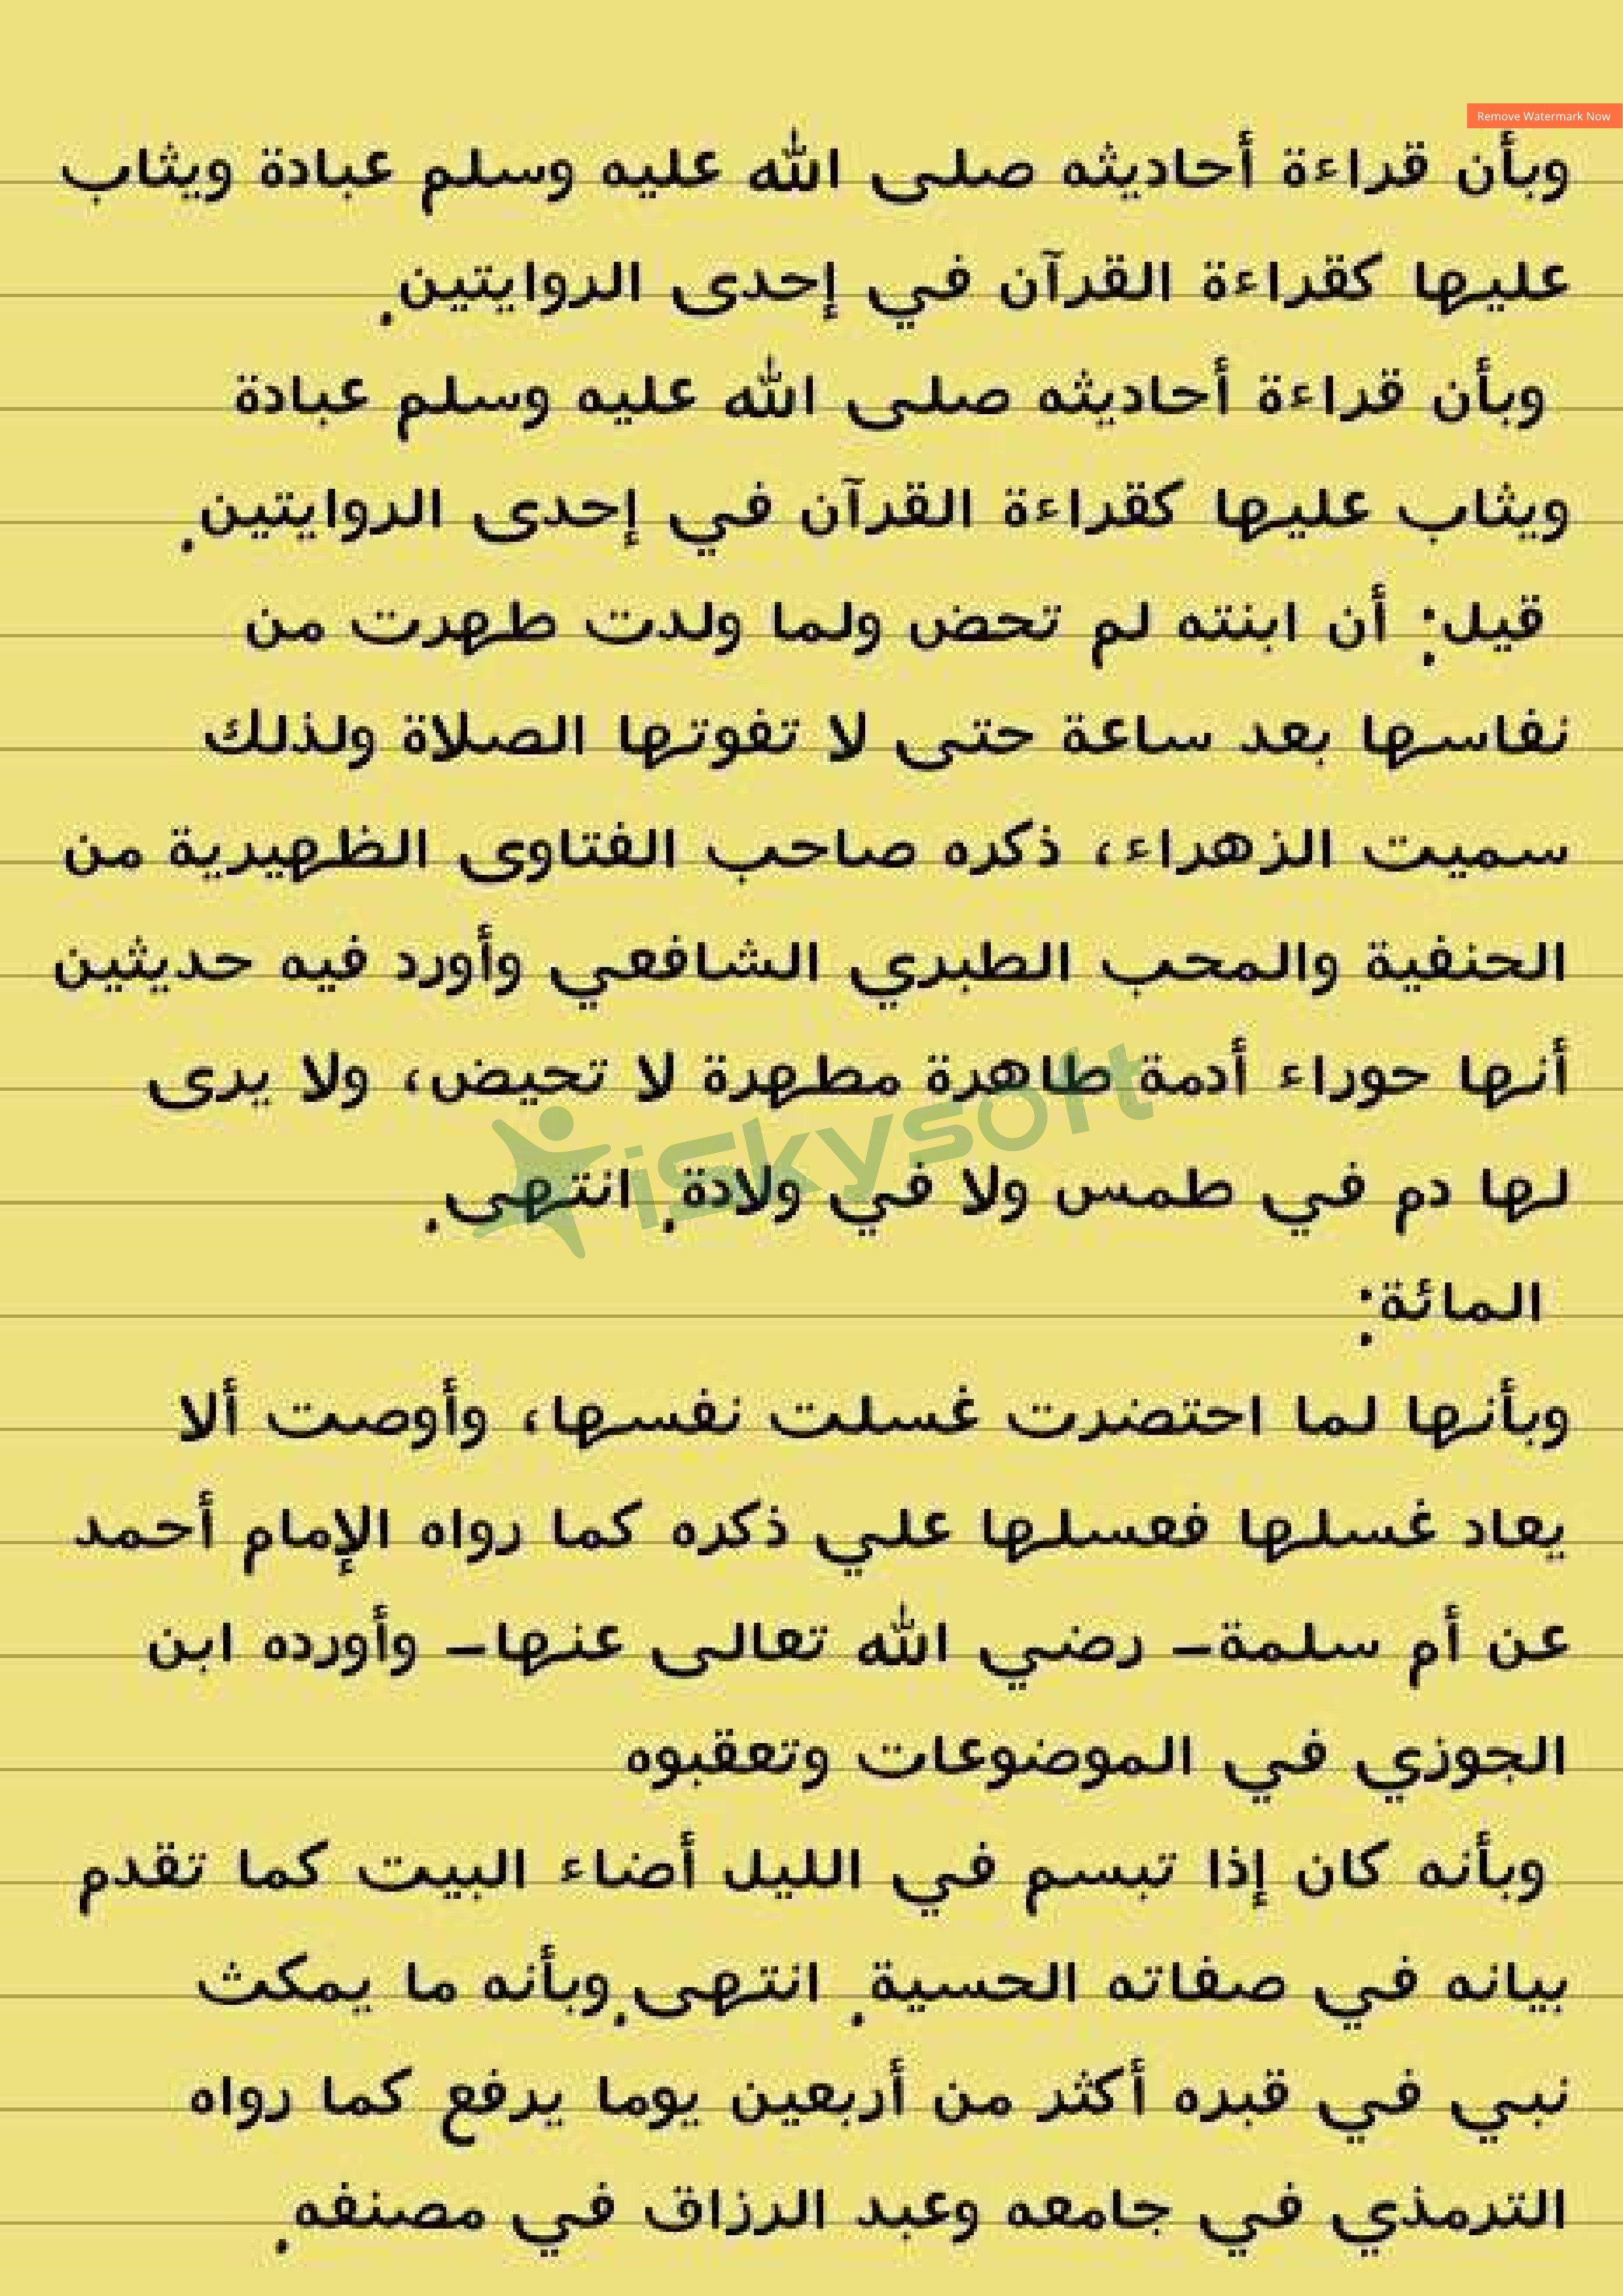 Remove Watermark Now
وبأن قراءة أحاديثه صلى الله عليه وسلم عبادة ويثاب
عليها كقراءة القرآن في إحدى الروايتين.
وبأن قراءة أحاديثه صلى الله عليه وسلم عبادة
ويثاب عليها كقراءة القرآن في إحدى الروايتين.
قيل: أن ابنته لم تحض ولما ولدت طهرت من
نفاسها بعد ساعة حتى لا تفوتها الصلاة ولذلك
سميت الزهراء، ذكره صاحب الفتاوى الظهيرية من
الحنفية والمحب الطبري الشافعي وأورد فيه حديثين
أنها حوراء أدمة طاهرة مطهرة لا تحيض، ولا يرى
لها دم في طمس ولا في ولادة. انتهى.
iskysoft
المائة:
وبأنها لما احتضرت غسلت نفسها، وأوصت ألا
يعاد غسلها فعسلها علي ذكره كما رواه الإمام أحمد
عن أم سلمة– رضي الله تعالى عنها– وأورده ابن
الجوزي في الموضوعات وتعقبوه
وبأنه كان إذا تبسم في الليل أضاء البيت كما تقدم
بيانه في صفاته الحسية. انتهى.وبأنه ما يمكث
نبي في قبره أكثر من أربعين يوما يرفع كما رواه
الترمذي في جامعه وعبد الرزاق في مصنفه.